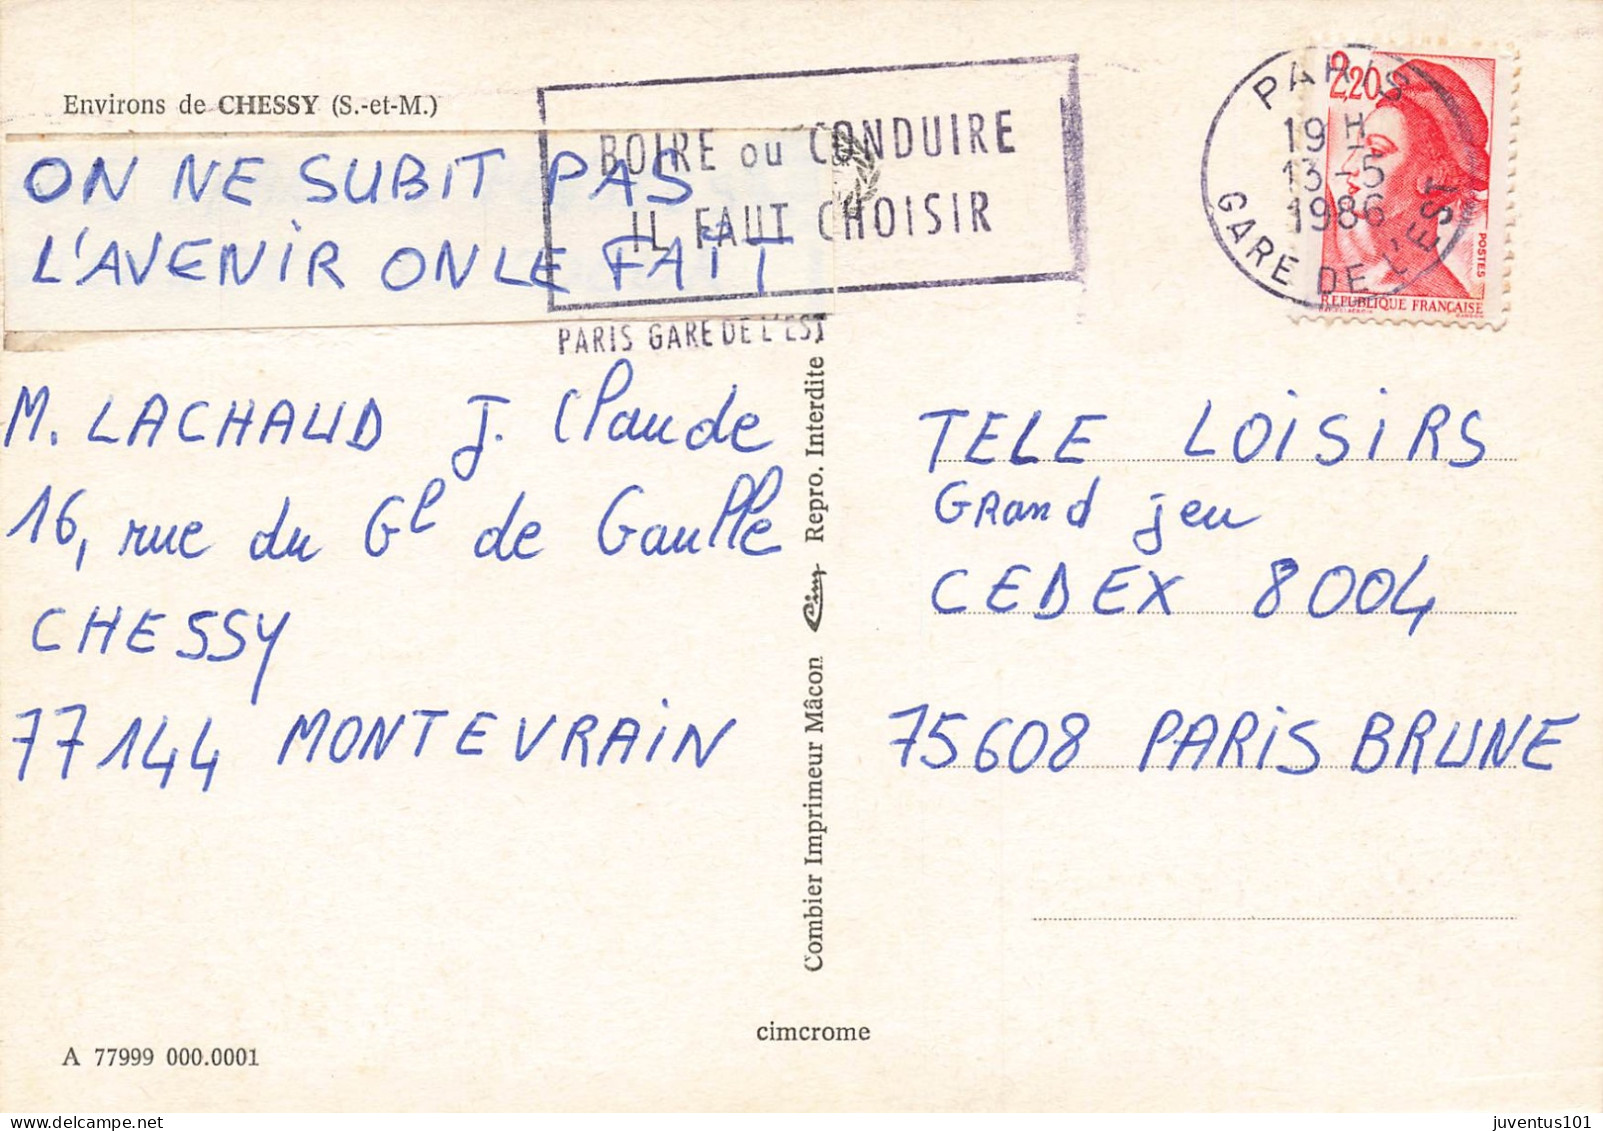 Environs de CHESSY (S.-et-M.)
ON NE SUBIT PAS
L'AVENIR ON LE FAIT
BOIRE OU CONDUIRE
IL FAUT CHOISIR
PARIS GARE DE L'EST
PARIS
19 H
13 - 5
1986
GARE DE L'EST
2,20
POSTES
REPUBLIQUE FRANÇAISE
M. LACHAUD J. Claude
16, rue du Gl de Gaulle
CHESSY
77144 MONTEVRAIN
Combier Imprimeur Mâcon Cim Repro. Interdite
TELE LOISIRS
Grand jeu
CEDEX 8004
75608 PARIS BRUNE
cimcrome
A 77999 000.0001
juventus101